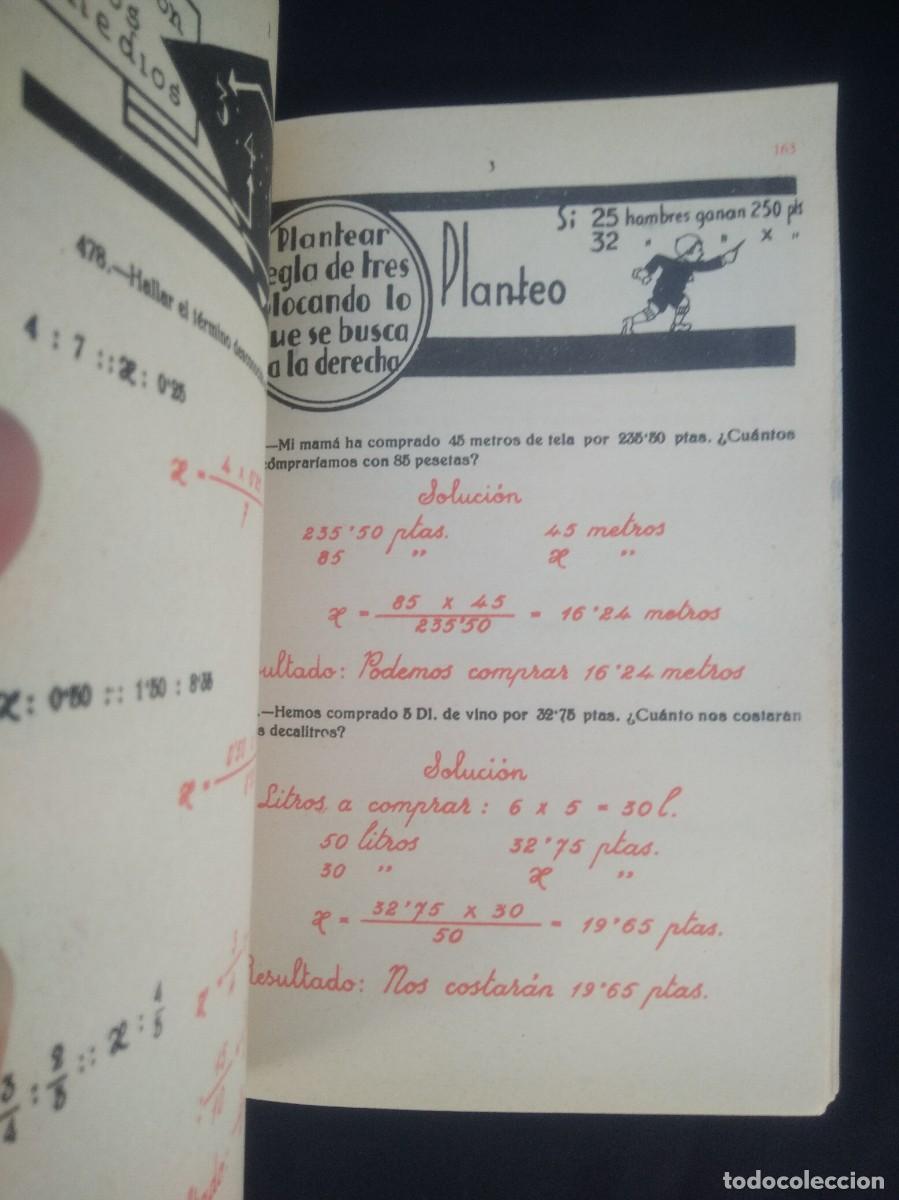 478.—Hallar el término
4 : 7 :: x : 0'25
x =
x : 0'50 :: 1'50 : 8'35
x =
3/4 : 2/5 :: x : 4/5
x =
163
3
Plantear
regla de tres
colocando lo
que se busca
a la derecha
Planteo
Si 25 hombres ganan 250 pts
32 " " x "
—Mi mamá ha comprado 45 metros de tela por 235'50 ptas. ¿Cuántos
compraríamos con 85 pesetas?
Solución
235'50 ptas. 45 metros
85 " x "
x = 85 x 45 / 235'50 = 16'24 metros
ultado: Podemos comprar 16'24 metros
.—Hemos comprado 5 Dl. de vino por 32'75 ptas. ¿Cuánto nos costarán
s decalitros?
Solución
Litros a comprar : 6 x 5 = 30 l.
50 litros 32'75 ptas.
30 " x "
x = 32'75 x 30 / 50 = 19'65 ptas.
Resultado: Nos costarán 19'65 ptas.
todocoleccion